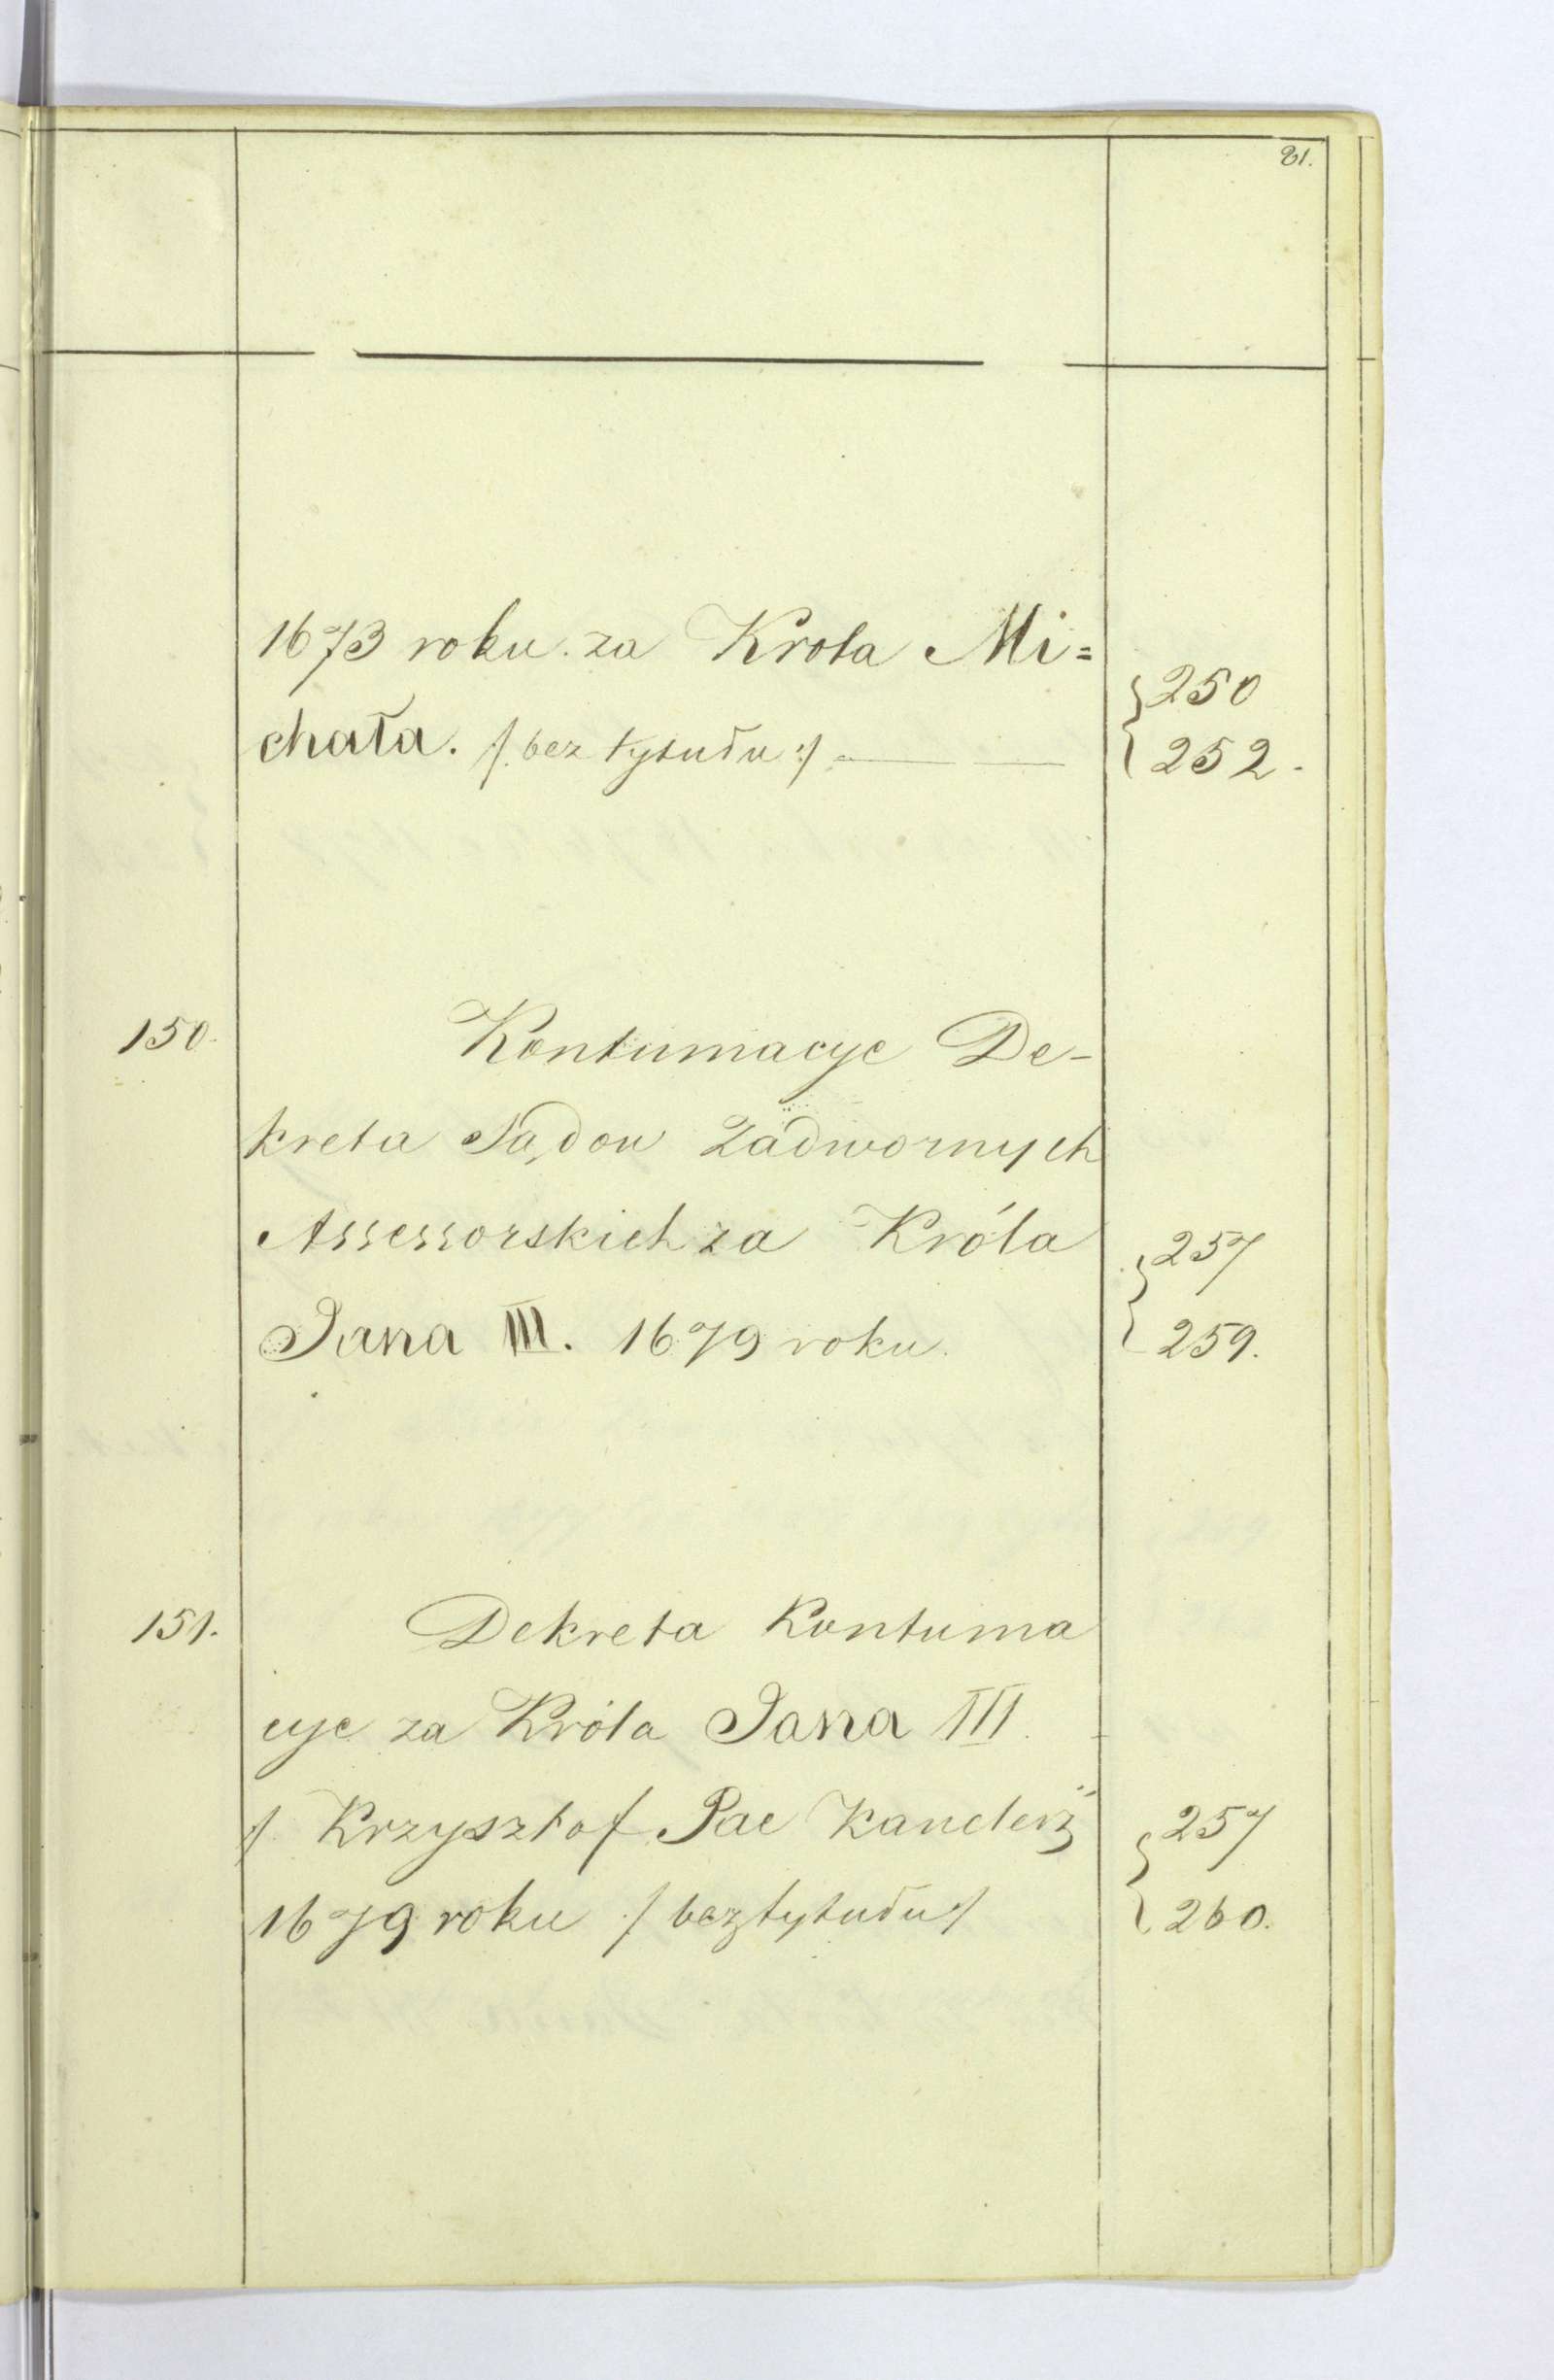 81.
1673 roku. za Krola Mi=
chała. /: bez tytułu :/
250
252.
150.
Kontumacye De-
kreta Sądow Zadwornych
Assessorskich za Króla
Jana III. 1679 roku.
257
259.
151.
Dekreta Kontuma
cye za Króla Jana III.
/: Krzysztof Pac Kanclerz
1679 roku /: bez tytułu :/
257
260.